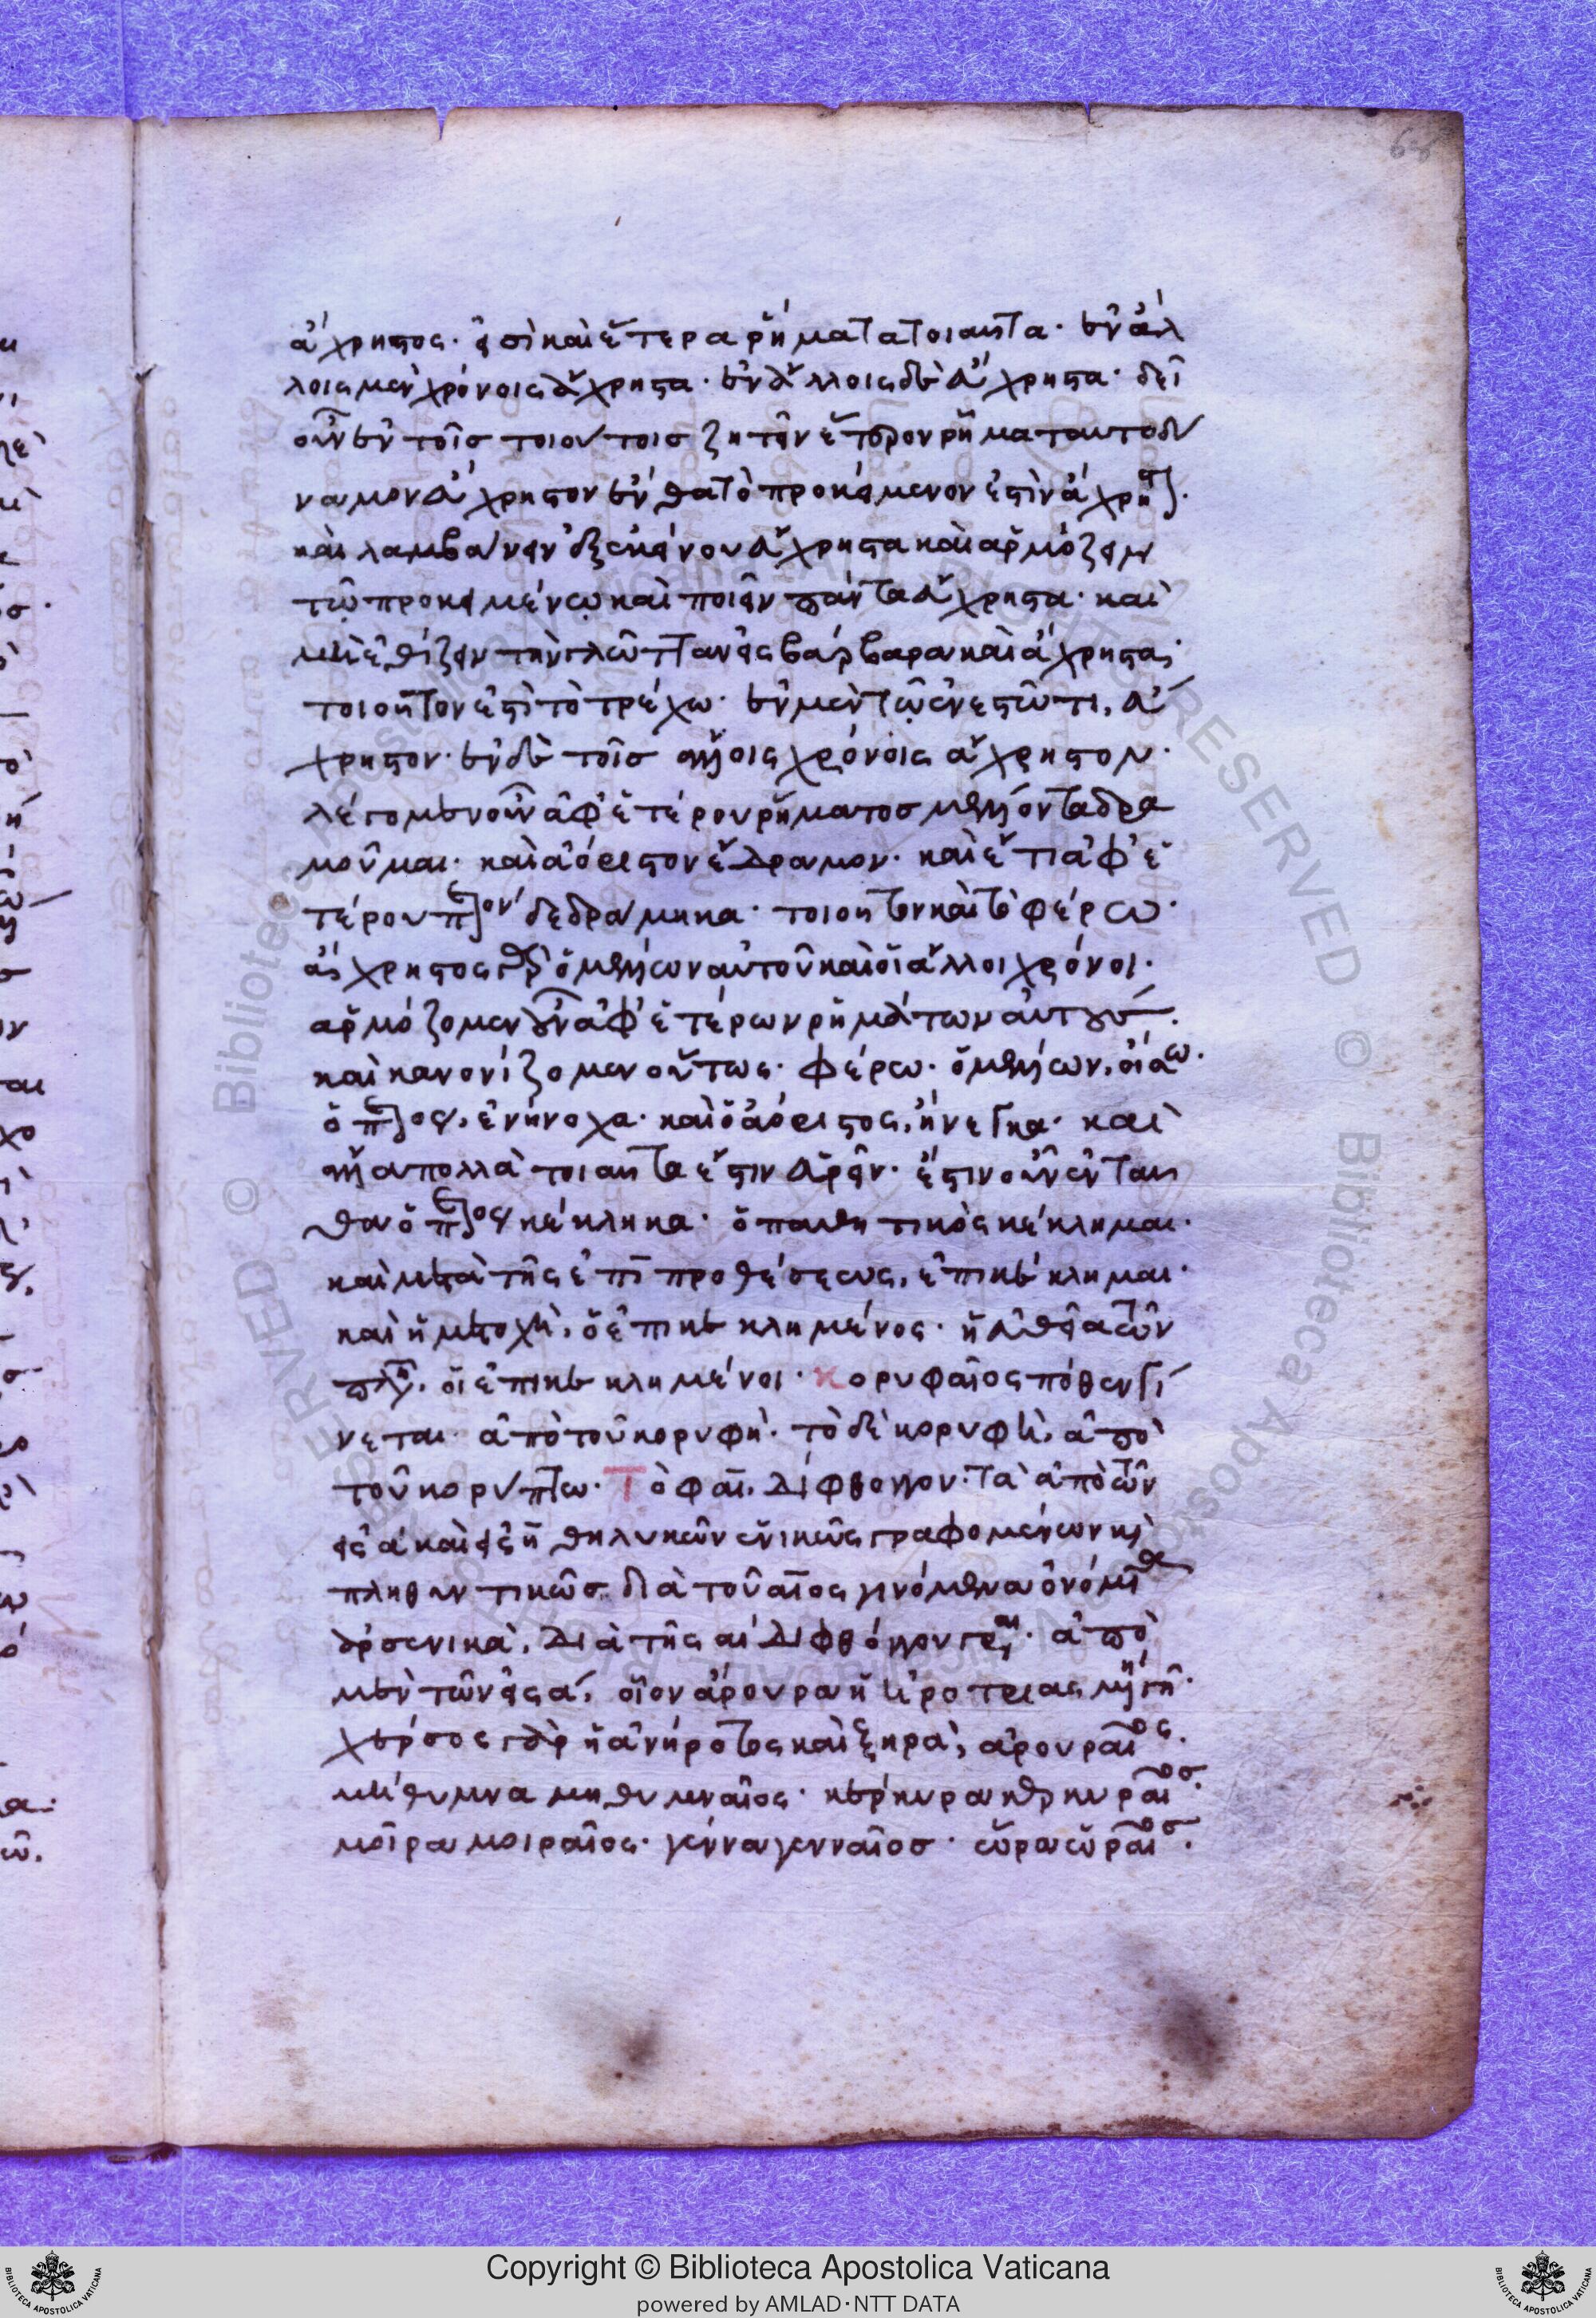 ἄχρηστος· εἰσὶ καὶ ἕτερα ῥήματα τοιαῦτα· ἐν ἄλ
λοις μὲν χρόνοις εὔχρηστα· ἐν ἄλλοις δὲ ἄχρηστα· δεῖ
οὖν ἐν τοῖς τοιούτοις ζητεῖν ἕτερον ῥῆμα ταυτοδύ
ναμον εὔχρηστον ἔνθα τὸ προκείμενον ἐστὶν ἄχρηστον.
καὶ λαμβάνειν ἐξ ἐκείνου εὔχρηστα καὶ ἁρμόζειν
τῷ προκειμένῳ καὶ ποιεῖν πάντα εὔχρηστα· καὶ
μὴ ἐθίζειν τὴν γλῶτταν εἰς βάρβαρα καὶ ἄχρηστα·
τοιοῦτον ἐστὶ τὸ τρέχω· ἐν μὲν τῷ ἐνεστῶτι, εὔ
χρηστον· ἐν δὲ τοῖς ἄλλοις χρόνοις ἄχρηστον·
λέγομεν οὖν ἀφ' ἑτέρου ῥήματος μέλλοντα δρα
μοῦμαι· καὶ ἀόριστον ἔδραμον· καὶ ἔτι ἀφ' ἑ
τέρου π(αρακείμεν)ον δεδράμηκα· τοιοῦτον καὶ τὸ φέρω·
ἄχρηστος γὰρ ὁ μέλλων αὐτοῦ καὶ οἱ ἄλλοι χρόνοι·
ἁρμόζομεν οὖν ἀφ' ἑτέρων ῥημάτων αὐτούς.
καὶ κανονίζομεν οὕτως· φέρω· ὁ μέλλων, οἴσω.
ὁ π(αρακείμεν)ος, ἐνήνοχα· καὶ ὁ ἀόριστος, ἤνεγκα· καὶ
ἄλλα πολλὰ τοιαῦτα ἔστιν εὑρεῖν· ἔστιν οὖν ἐνταῦ
θα ὁ π(αρακείμεν)ος κέκληκα· ὁ παθητικὸς κέκλημαι·
καὶ μετὰ τῆς ἐπὶ προθέσεως, ἐπικέκλημαι·
καὶ ἡ μετοχὴ, ὁ ἐπικεκλημένος· ἡ εὐθεῖα τῶν
πληθ, οἱ ἐπικεκλημένοι· κορυφαῖος πόθεν γί
νεται· ἀπὸ τοῦ κορυφή· τὸ δὲ κορυφὴ, ἀπὸ
τοῦ κορύπτω· Τὸ φαῖ, δίφθογγον· τὰ ἀπὸ τῶν
εἰς α καὶ εἰς η θηλυκῶν ἑνικῶς γραφομένων καὶ
πληθυντικῶς διὰ τοῦ αιος γινόμενα ὀνόματα
ἀρσενικὰ, διὰ τῆς αι διφθόγγου γράφεται· ἀπὸ
μὲν τῶν εἰς α, οἷον ἄρουρα ἡ ἠροτριασμένη γῆ·
χέρσος γὰρ ἡ ἀνήροτος καὶ ξηρὰ, ἀρουραῖος.
μήθυμνα μηθυμναῖος· κέρκυρα κερκυραῖος·
μοῖρα μοιραῖος· γέννα γενναῖος· ὥρα ὡραῖος.
Copyright © Biblioteca Apostolica Vaticana
powered by AMLAD·NTT DATA